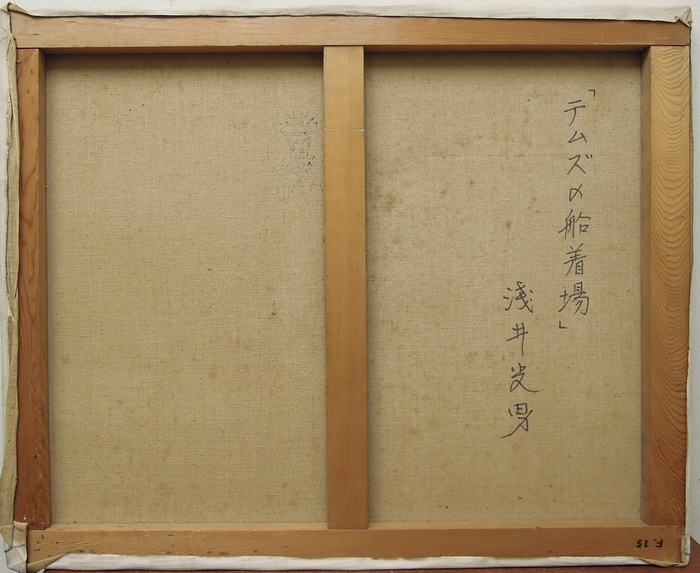 「テムズの船着場」
浅井光男
F.15